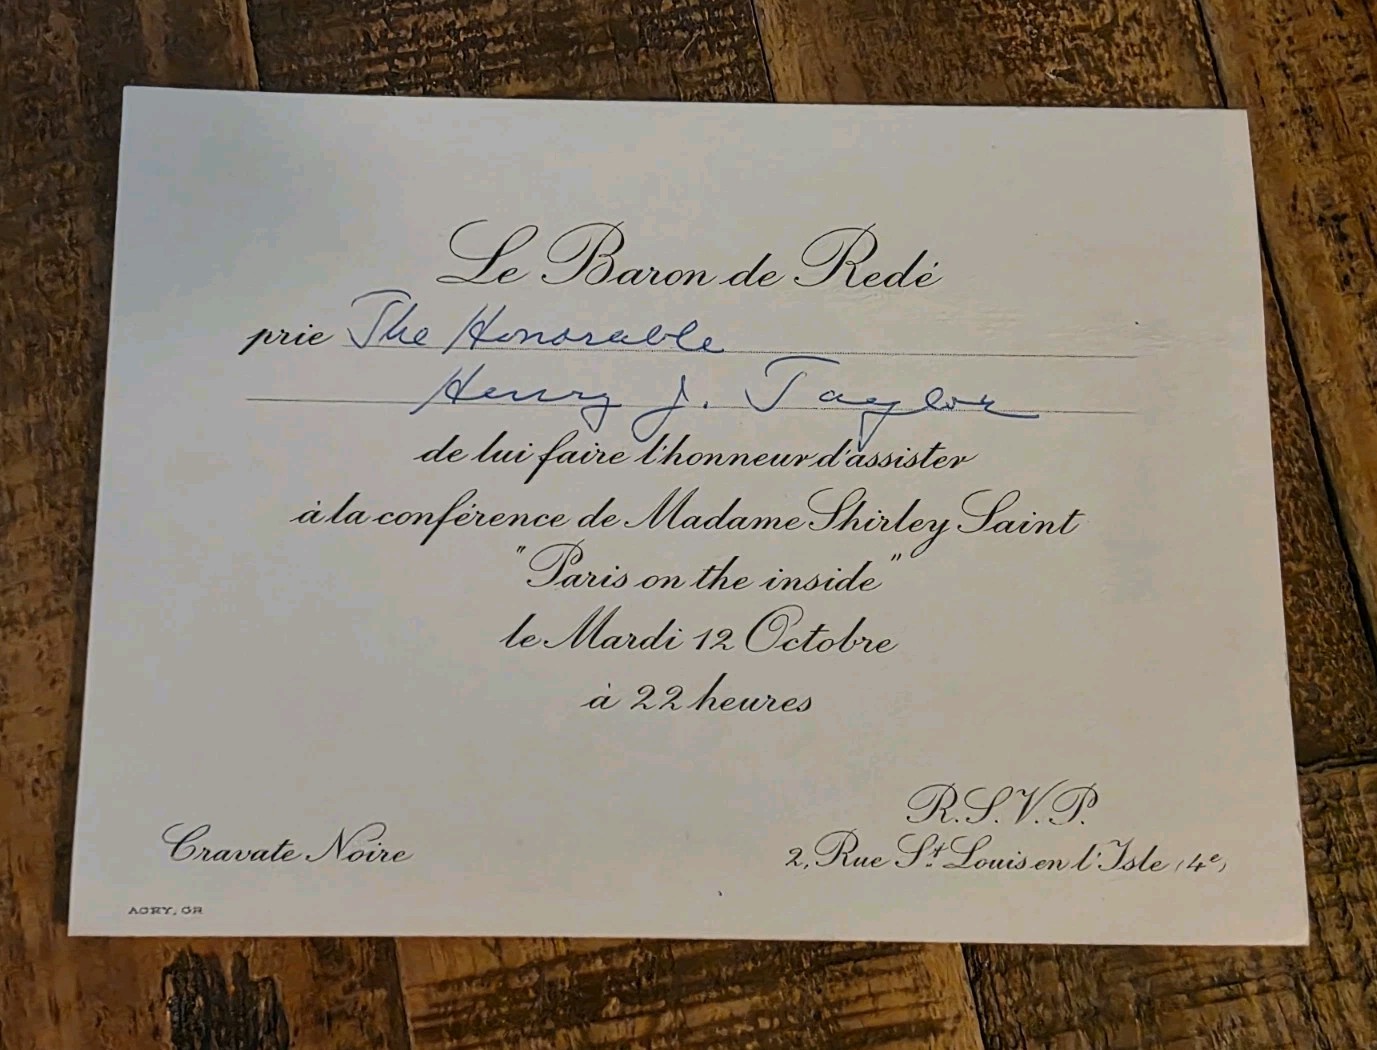 Le Baron de Redé
prie The Honorable
Henry J. Taylor
de lui faire l'honneur d'assister
à la conférence de Madame Shirley Saint
"Paris on the inside"
le Mardi 12 Octobre
à 22 heures
R.S.V.P.
Cravate Noire
2, Rue St Louis en l'Isle (4e)
AGRY, GR